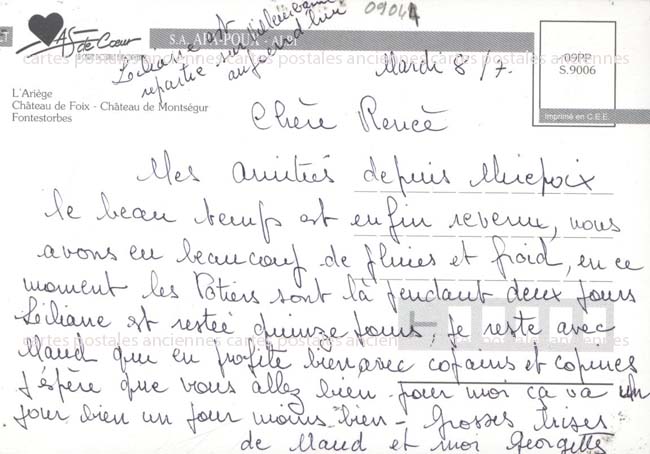 AS de Cœur
S.A. APA-POUX - ALBI
09044
09PP
S.9006
Imprimé en C.E.E.
L'Ariège
Château de Foix - Château de Montségur
Fontestorbes
cartes postales anciennes cartes postales anciennes cartes postales anciennes
Léliane est
repartie sur
aujourd'hui
Mardi 8/7.
Chère Renée
Mes amitiés depuis Mirepoix
le beau temps est enfin revenu, nous
avons eu beaucoup de pluies et froid, en ce
moment les Potiers sont là pendant deux jours
Léliane est restée quinze jours, je reste avec
Maud que en profite bien avec copains et copines
J'espère que vous allez bien. pour moi ça va un
jour bien un jour moins bien - Grosses bises
de Maud et moi Georgette
cartes postales anciennes cartes postales anciennes cartes postales anciennes